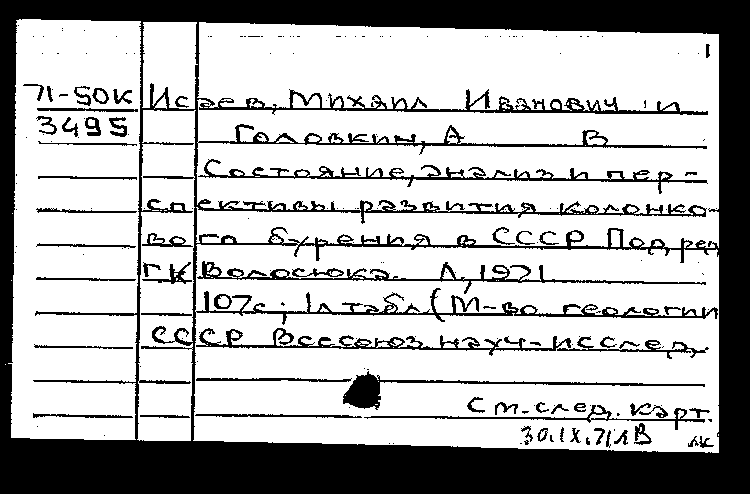 1
71-50К Исаев, Михаил Иванович и
3495 Головкин, А В
Состояние, анализ и пер-
спективы развития колонко-
вого бурения в СССР Под ред
ГК Волосюка. Л, 1971
107с; 1л табл (М-во геологии
СССР Всесоюз науч-исслед.
См. след. карт.
30.IX.71 1В лк